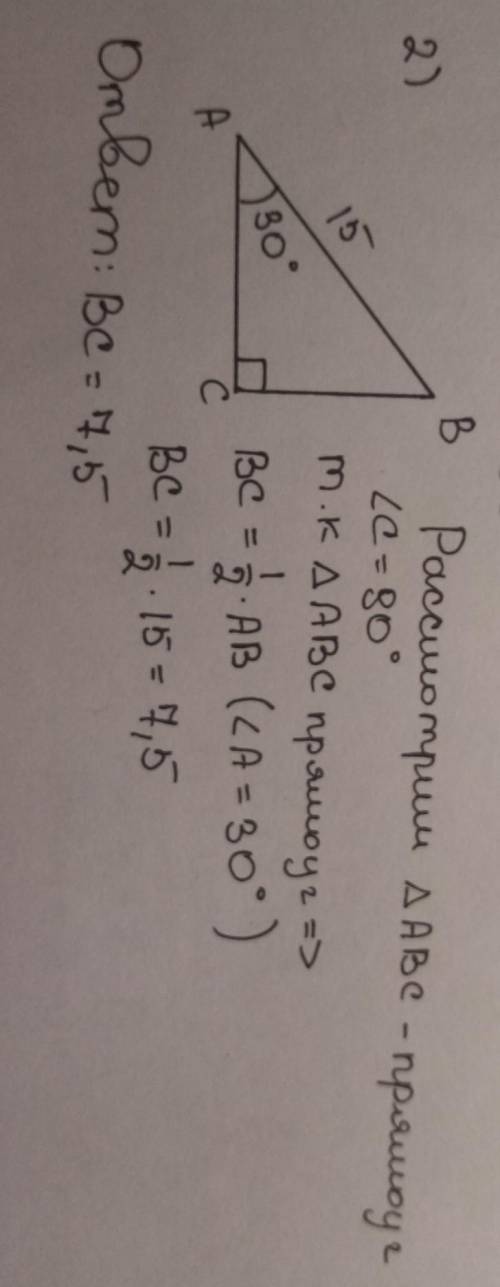 2)
B
15
30°
A
C
Рассмотрим ΔABC - прямоуг
∠C = 90°
т.к ΔABC прямоуг =>
BC = 1/2 · AB (∠A = 30°)
BC = 1/2 · 15 = 7,5
Ответ: BC = 7,5